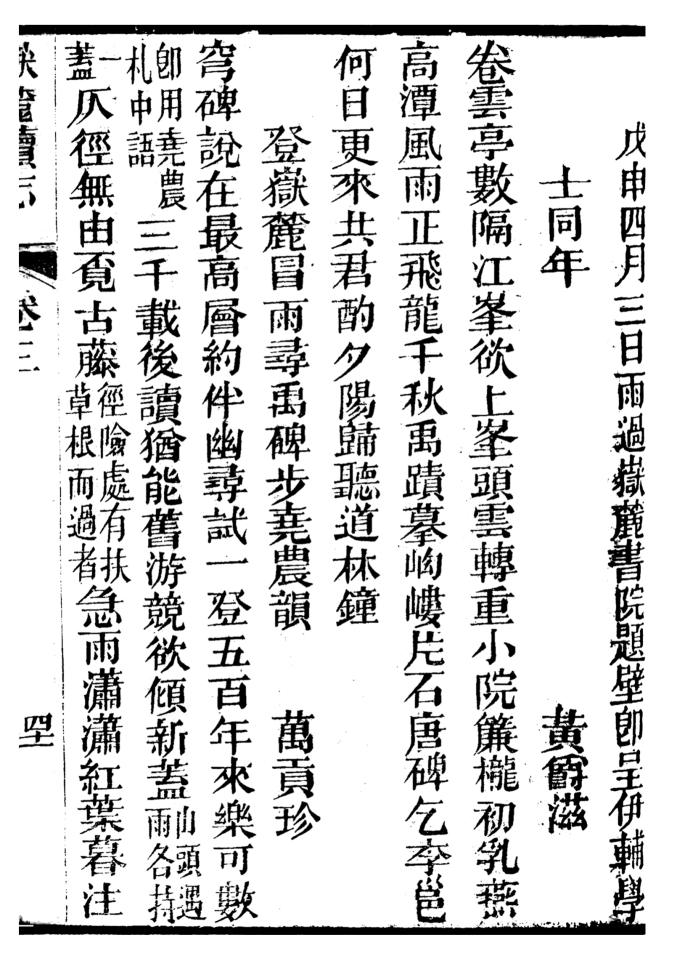 戊申四月三日雨過嶽麓書院題壁卽呈伊輔學
士同年　黃爵滋
卷雲亭數隔江峯欲上峯頭雲轉重小院簾櫳初乳燕
高潭風雨正飛龍千秋禹蹟摹岣嶁片石唐碑乞李邕
何日更來共君酌夕陽歸聽道林鐘
登嶽麓冒雨尋禹碑步堯農韻　萬貢珍
穹碑說在最高層約伴幽尋試一登五百年來樂可數
卽用堯農
札中語
三千載後讀猶能舊游競欲傾新蓋
山頭遇
雨各持
一
蓋
仄徑無由覓古藤
徑險處有扶
草根而過者
急雨瀟瀟紅葉暮注
嶽麓續志
卷三
四十